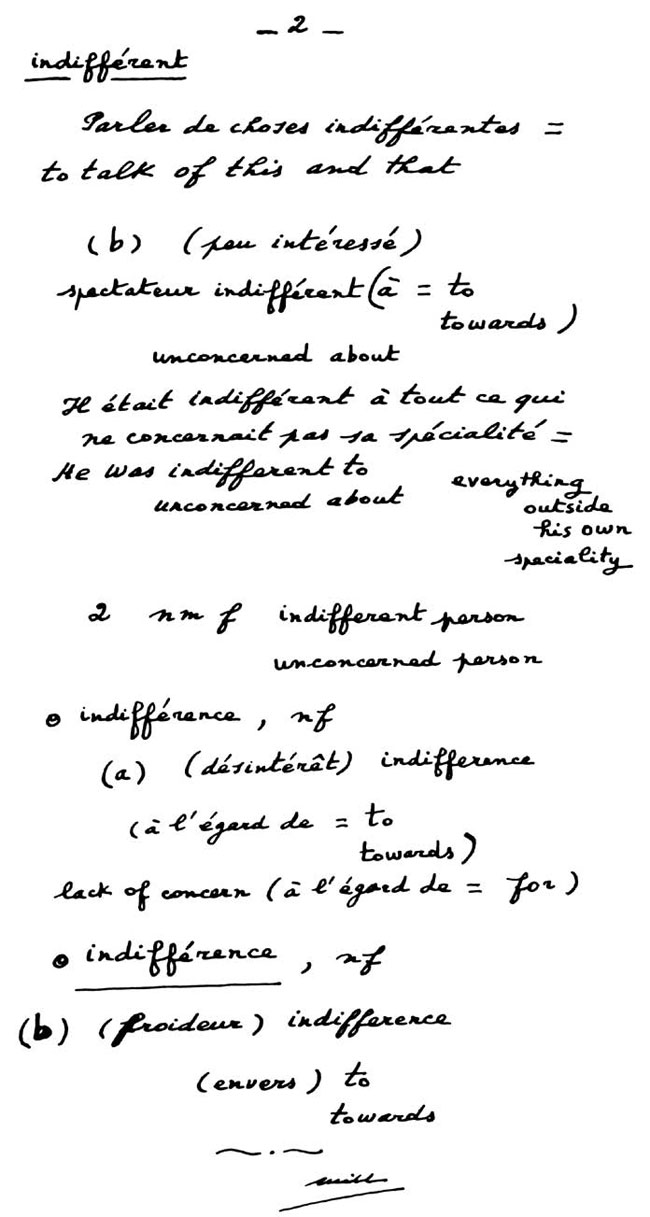 - 2 -
indifférent
Parler de choses indifférentes =
to talk of this and that
(b) (peu intéressé)
spectateur indifférent (à = to
towards)
unconcerned about
Il était indifférent à tout ce qui
ne concernait pas sa spécialité =
He was indifferent to
unconcerned about
everything
outside
his own
speciality
2 nm f indifferent person
unconcerned person
• indifférence, nf
(a) (désintérêt) indifference
(à l'égard de = to
towards)
lack of concern (à l'égard de = for)
• indifférence, nf
(b) (froideur) indifference
(envers) to
towards